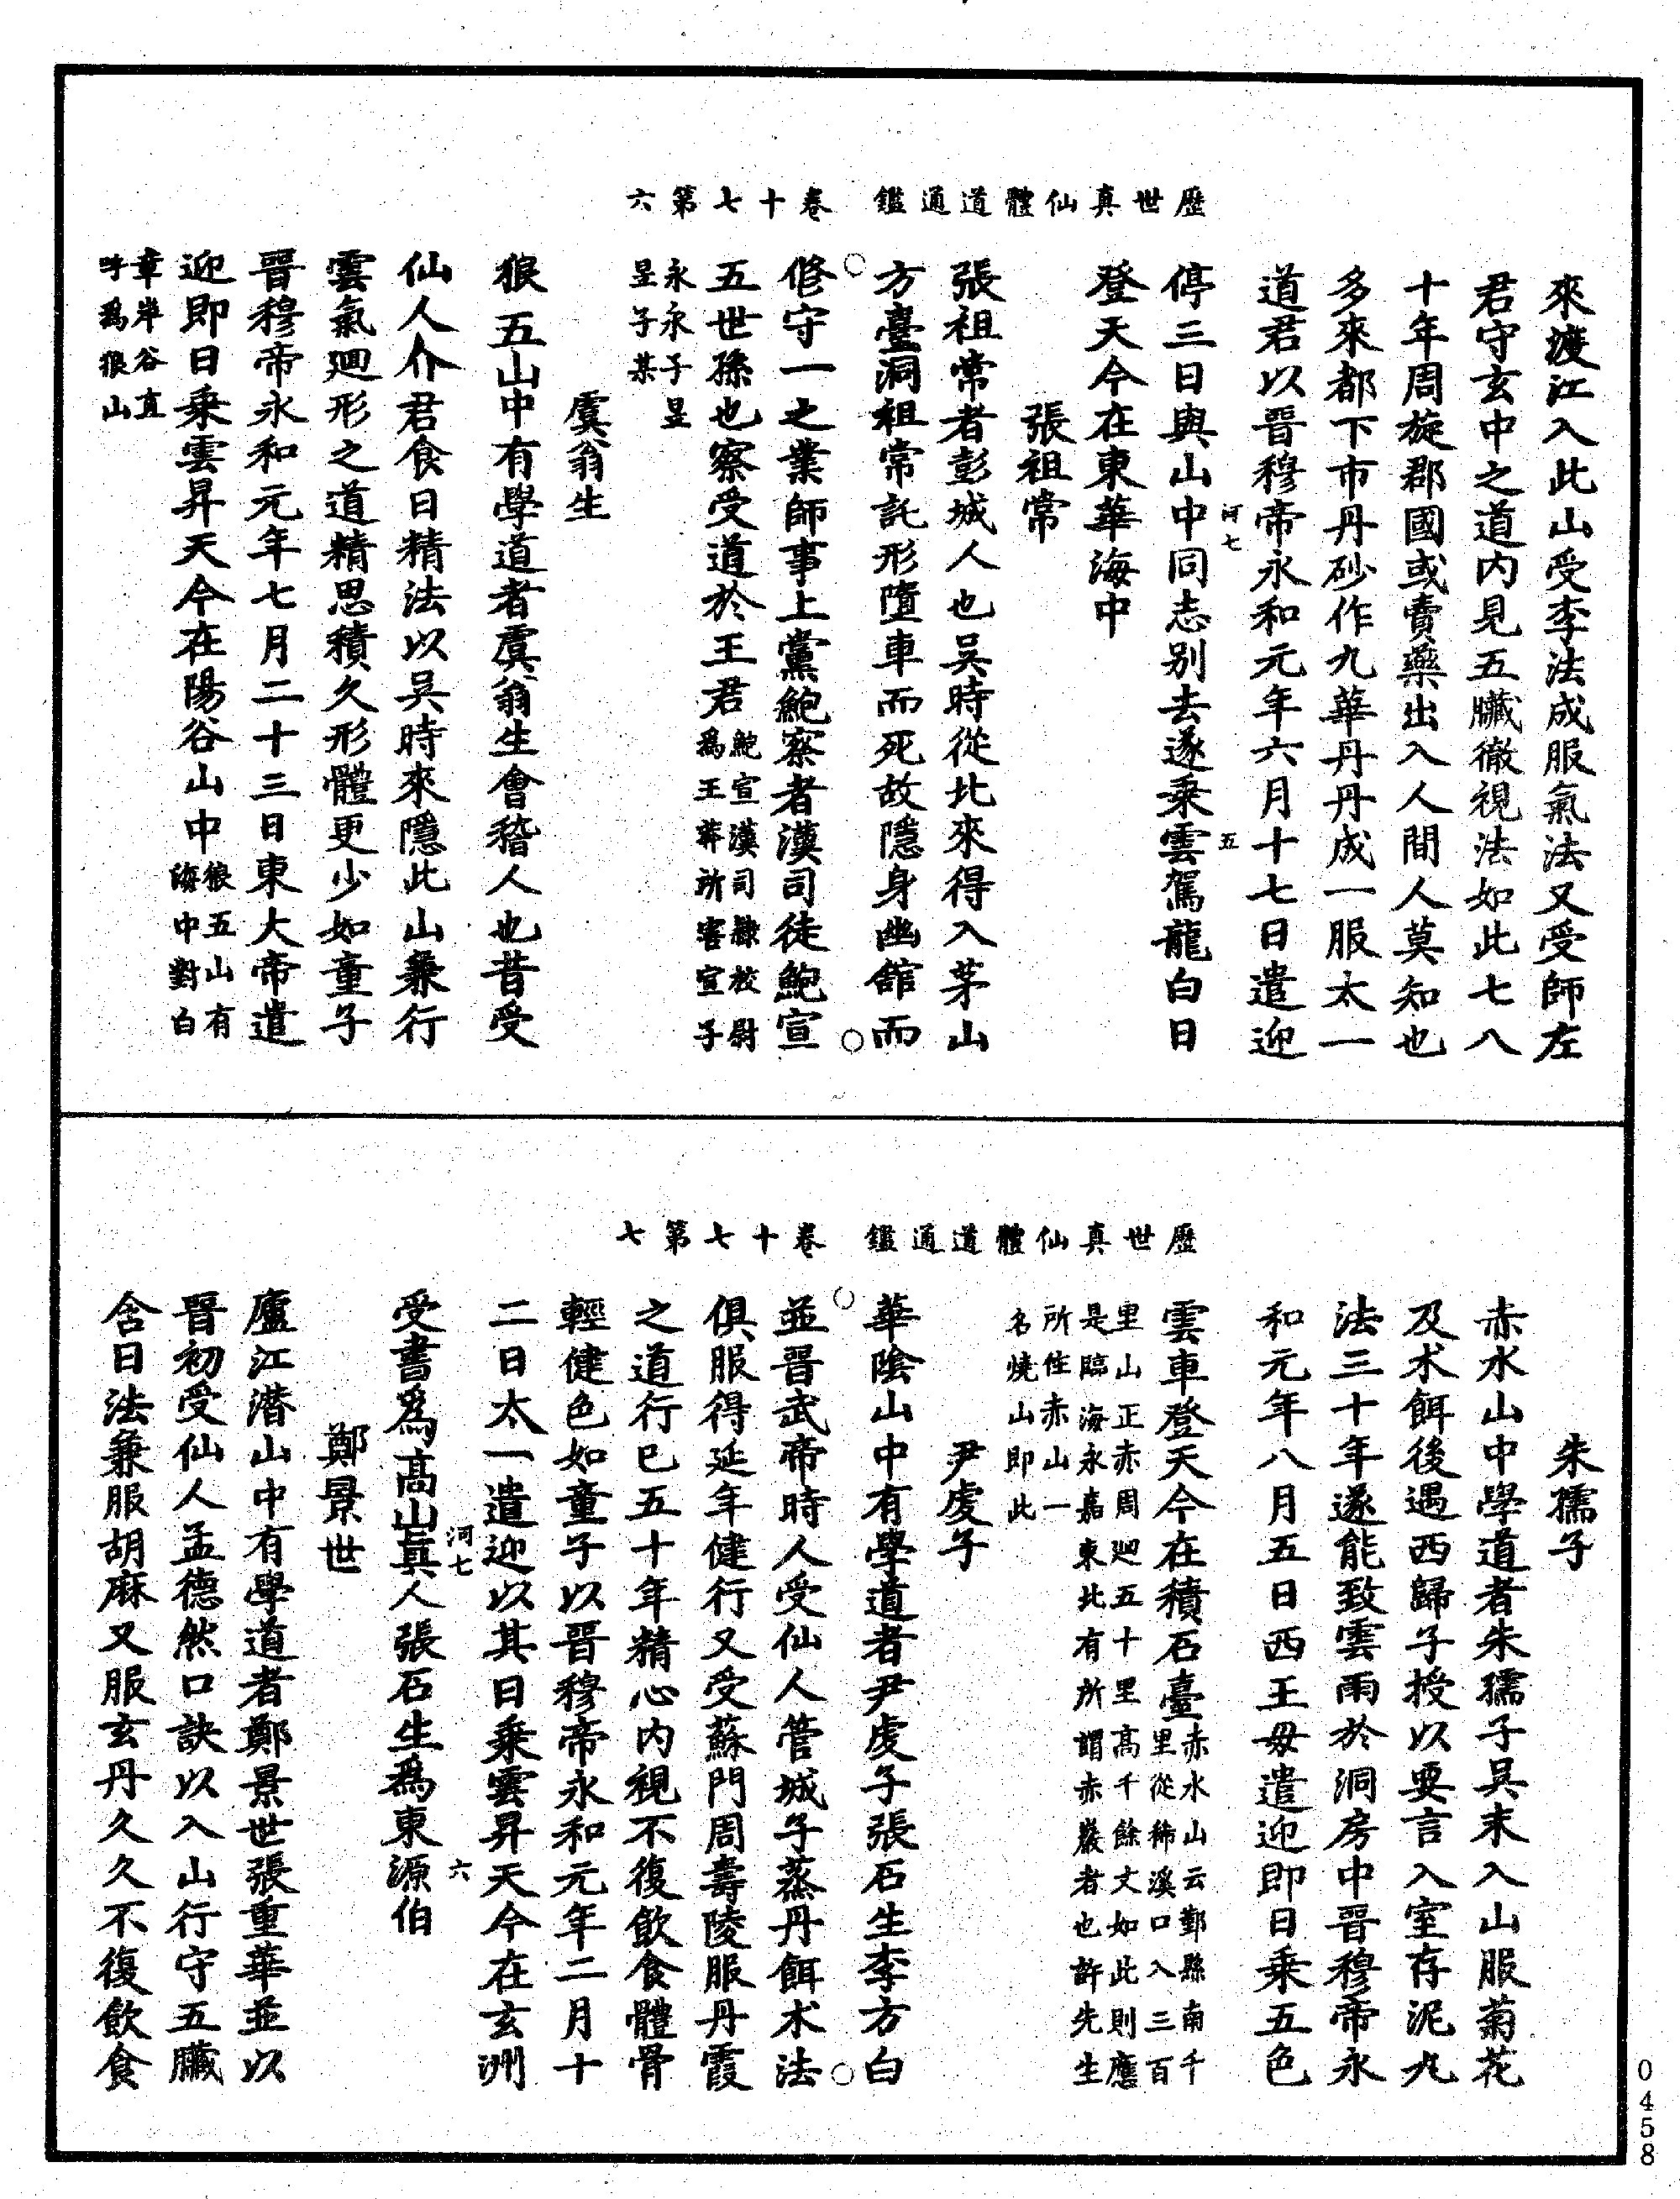 歷世真仙體道通鑑　卷十七第六
來渡江入此山受李法成服氣法又受師左
君守玄中之道内見五臟徹視法如此七八
十年周旋郡國或賣藥出入人間人莫知也
多來都下市丹砂作九華丹丹成一服太一
道君以晉穆帝永和元年六月十七日遣迎
河七　五
停三日與山中同志别去遂乘雲駕龍白日
登天今在東華海中
張祖常
張祖常者彭城人也吳時從北來得入茅山
方臺洞祖常託形墮車而死故隱身幽舘而
修守一之業師事上黨鮑察者漢司徒鮑宣
五世孫也察受道於王君鮑宣漢司隸校尉
爲王莽所害宣子
永永子昱
昱子某
虞翁生
狼五山中有學道者虞翁生會稽人也昔受
仙人介君食日精法以吳時來隱此山兼行
雲氣廻形之道精思積久形體更少如童子
晉穆帝永和元年七月二十三日東大帝遣
迎即日乘雲昇天今在陽谷山中狼五山有
海中對白
章岸谷直
呼爲狼山
歷世真仙體道通鑑　卷十七第七
朱孺子
赤水山中學道者朱孺子吳末入山服菊花
及术餌後遇西歸子授以要言入室存泥丸
法三十年遂能致雲雨於洞房中晉穆帝永
和元年八月五日西王母遣迎即日乘五色
雲車登天今在積石臺赤水山云鄞縣南千
里從稀溪口入三百
里山正赤周廻五十里高千餘丈如此則應
是臨海永嘉東北有所謂赤巖者也許先生
所住赤山一
名燒山即此
尹虔子
華陰山中有學道者尹虔子張石生李方白
並晉武帝時人受仙人管城子蒸丹餌术法
俱服得延年健行又受蘇門周壽陵服丹霞
之道行已五十年精心内視不復飲食體骨
輕健色如童子以晉穆帝永和元年二月十
二日太一遣迎以其日乘雲昇天今在玄洲
河七　六
受書爲高山真人張石生爲東源伯
鄭景世
廬江潜山中有學道者鄭景世張重華並以
晉初受仙人孟德然口訣以入山行守五臟
含日法兼服胡麻又服玄丹久久不復飲食
0458